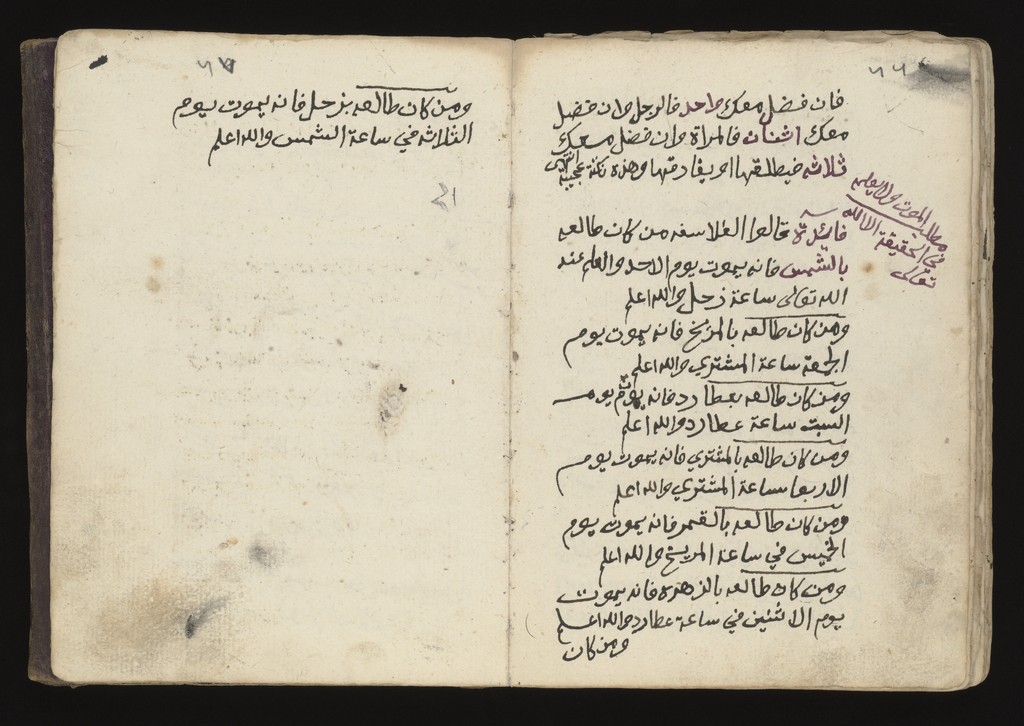 ٥٦
فان فضل معك واحد فالرجل وان فضل
معك اثنان فالمراة وان فضل معك
ثلاثه فيطلقها او يفارقها وهذه نكتة عجيبة
مطلب الموت ولا يعلم
في الحقيقة الا الله
تعالى
فائدة قالوا الفلاسفه من كان طالعه
بالشمس فانه يموت يوم الاحد والعلم عند
الله تعالى ساعة زحل والله اعلم
ومن كان طالعه بالمريخ فانه يموت يوم
الجمعة ساعة المشتري والله اعلم
ومن كان طالعه بعطارد فانه يموت يوم
السبت ساعة عطارد والله اعلم
ومن كان طالعه بالمشتري فانه يموت يوم
الاربعا ساعة المشتري والله اعلم
ومن كان طالعه بالقمر فانه يموت يوم
الخميس في ساعة المريخ والله اعلم
ومن كان طالعه بالزهره فانه يموت
يوم الاثنين في ساعة عطارد والله اعلم
ومن كان
٥٧
ومن كان طالعه بزحل فانه يموت يوم
الثلاثه في ساعة الشمس والله اعلم